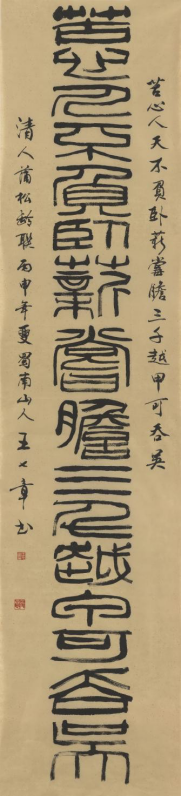 苦心人天不負臥薪嘗膽三千越甲可吞吳
苦心人天不負卧薪嘗膽三千越甲可吞吴
清人蒲松齡联丙申年夏蜀南山人王七章书